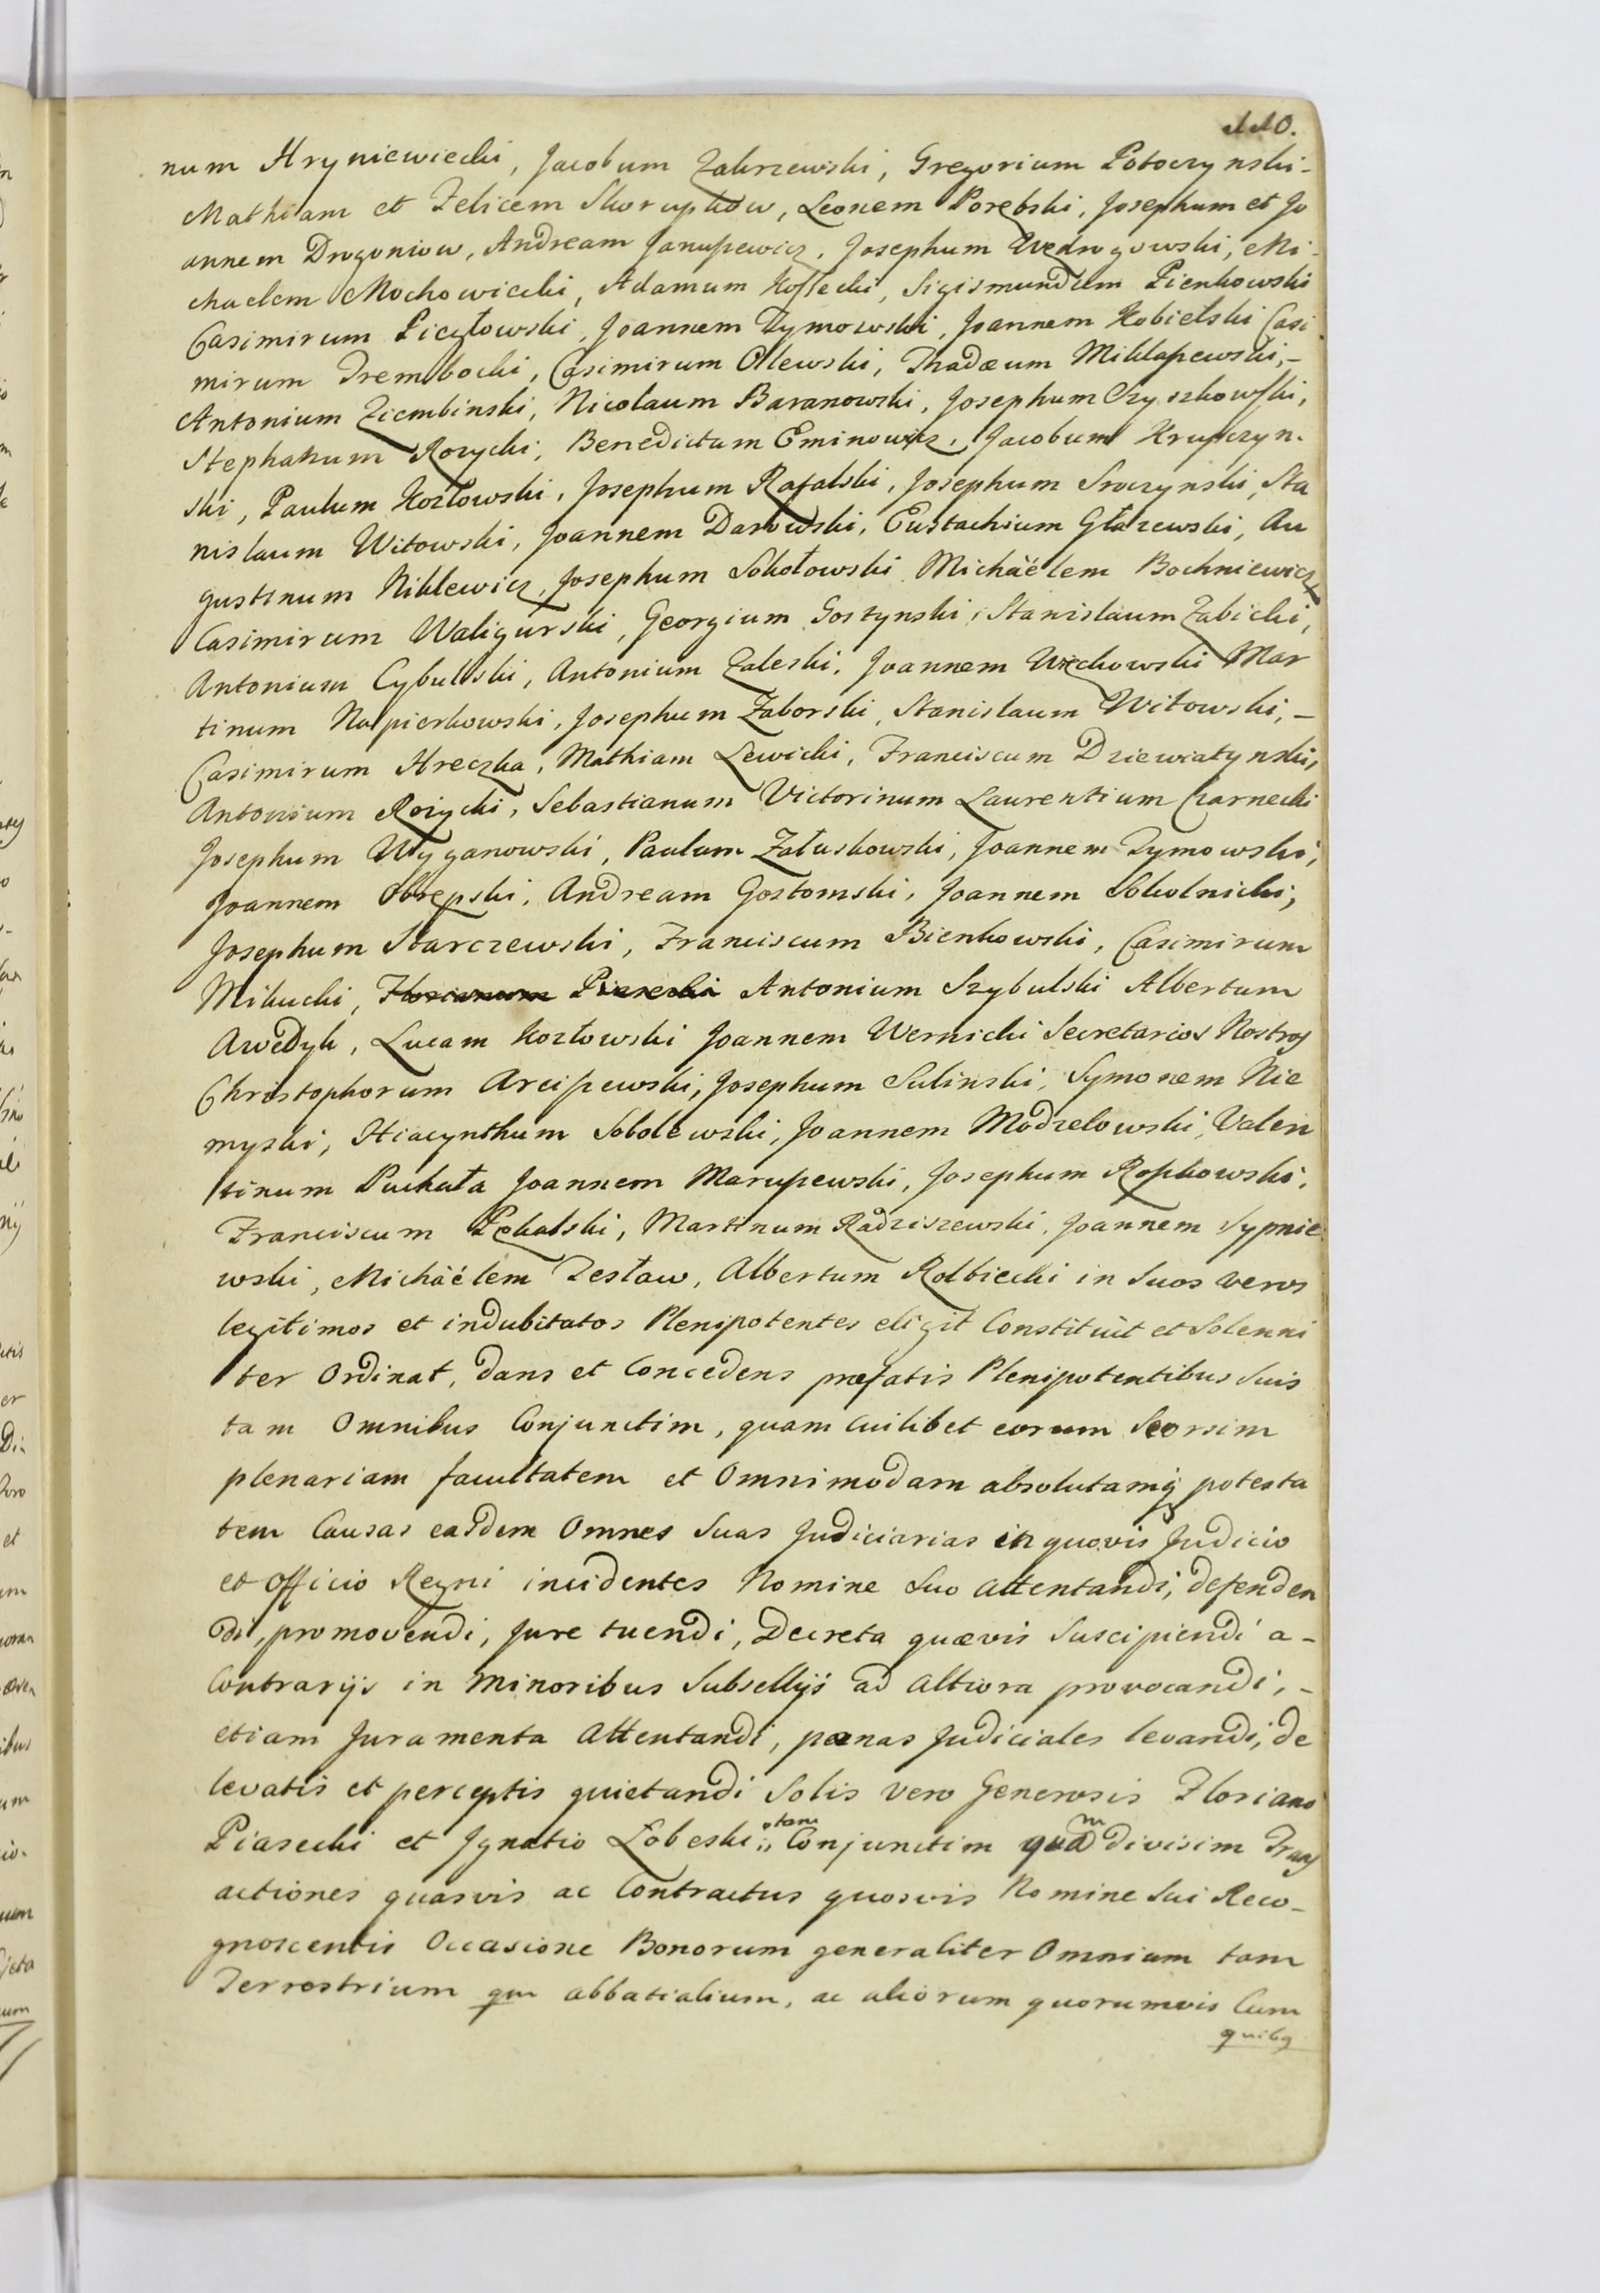 110.
num Hryniewiecki, Jacobum Zakrzewski, Gregorium Potoczynski-
Mathiam et Felicem Skorupkow, Leonem Porębski, Josephum et Jo
annem Drogoniow, Andream Januszewicz, Josephum Wędrogowski, Mi-
chaelem Mochowiecki, Adamum Kossecki, Sigismundum Pienkowski
Casimirum Piczłowski, Joannem Dymowski, Joannem Kobielski Casi
mirum Trembecki, Casimirum Olewski, Thadæum Miklaszewski,-
Antonium Ziembinski, Nicolaum Baranowski, Josephum Czyszkowski,
Stephanum Rozycki, Benedictum Eminowicz, Jacobum Krupczyn-
ski, Paulum Kozłowski, Josephum Rafalski, Josephum Sroczynski, Sta
nislaum Witowski, Joannem Darowski, Eustachium Głazewski, Au
gustinum Niklewicz, Josephum Sokołowski Michäélem Bochniewicz
Casimirum Waligurski, Georgium Gostynski, Stanislaum Zabicki,
Antonium Cybulski, Antonium Zaleski, Joannem Więckowski Mar
tinum Napierkowski, Josephum Zaborski, Stanislaum Witowski,-
Casimirum Hreczka, Mathiam Lewicki, Franciscum Dziewiatynski,
Antonium Rozycki, Sebastianum Victorinum Laurentium Czarnecki
Josephum Wyganowski, Paulum Załuskowski, Joannem Dymowski,
Joannem Obrępski, Andream Gostomski, Joannem Sokolnicki,
Josephum Starczewski, Franciscum Bienkowski, Casimirum
Mikucki, Florianum Piasecki Antonium Szybulski Albertum
Awedyk, Lucam Kozłowski Joannem Wernicki Secretarios Nostros
Christophorum Arciszewski, Josephum Sulinski, Symonem Nie
myski, Hiacynthum Sobolewski, Joannem Modzelowski, Valen
tinum Puchała Joannem Maruszewski, Josephum Roszkowski,
Franciscum Pękalski, Martinum Radziszewski, Joannem Sypnie
wski, Michäélem Testaw, Albertum Rolbiecki in Suos veros
legitimos et indubitatos Plenipotentes eligit Constituit et Solenni
ter Ordinat, dans et Concedens præfatis Plenipotentibus Suis
tam Omnibus Conjunctim, quam Cuilibet eorum Seorsim
plenariam facultatem et Omnimodam absolutamq potesta
tem Causas easdem Omnes Suas Judiciarias in quovis Judicio
et Officio Regni incidentes Nomine Suo attentandi, defenden
di, promovendi, Jure tuendi, Decreta quævis Suscipiendi a-
Contrarijs in Minoribus Subsellijs ad Altiora provocandi,-
etiam Juramenta Attentandi, pœnas Judiciales levandi, de
levatis et perceptis quietandi Solis vero Generosis Floriano
Piasecki et Jgnatio Łobeski tam Conjunctim quam divisim Trans
actiones quasvis ac Contractus quosvis Nomine Sui Reco-
gnoscentis Occasione Bonorum generaliter Omnium tam
Terrestrium qm abbatialium, ac aliorum quorumvis Cum
quibq